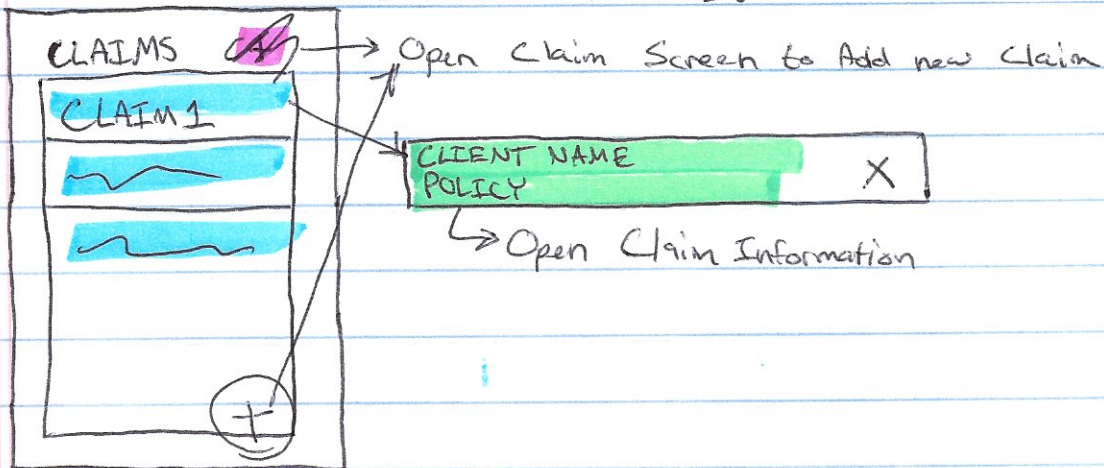 CLAIMS
Open Claim Screen to Add new Claim
CLAIM 1
CLIENT NAME
POLICY
X
Open Claim Information
+